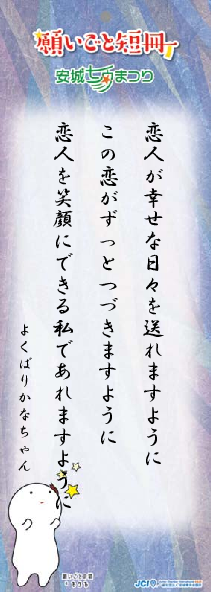 願いごと短冊
安城七夕まつり
恋人が幸せな日々を送れますように
この恋がずっとつづきますように
恋人を笑顔にできる私であれますように
よくばりかなちゃん
願いごと武将
JCI